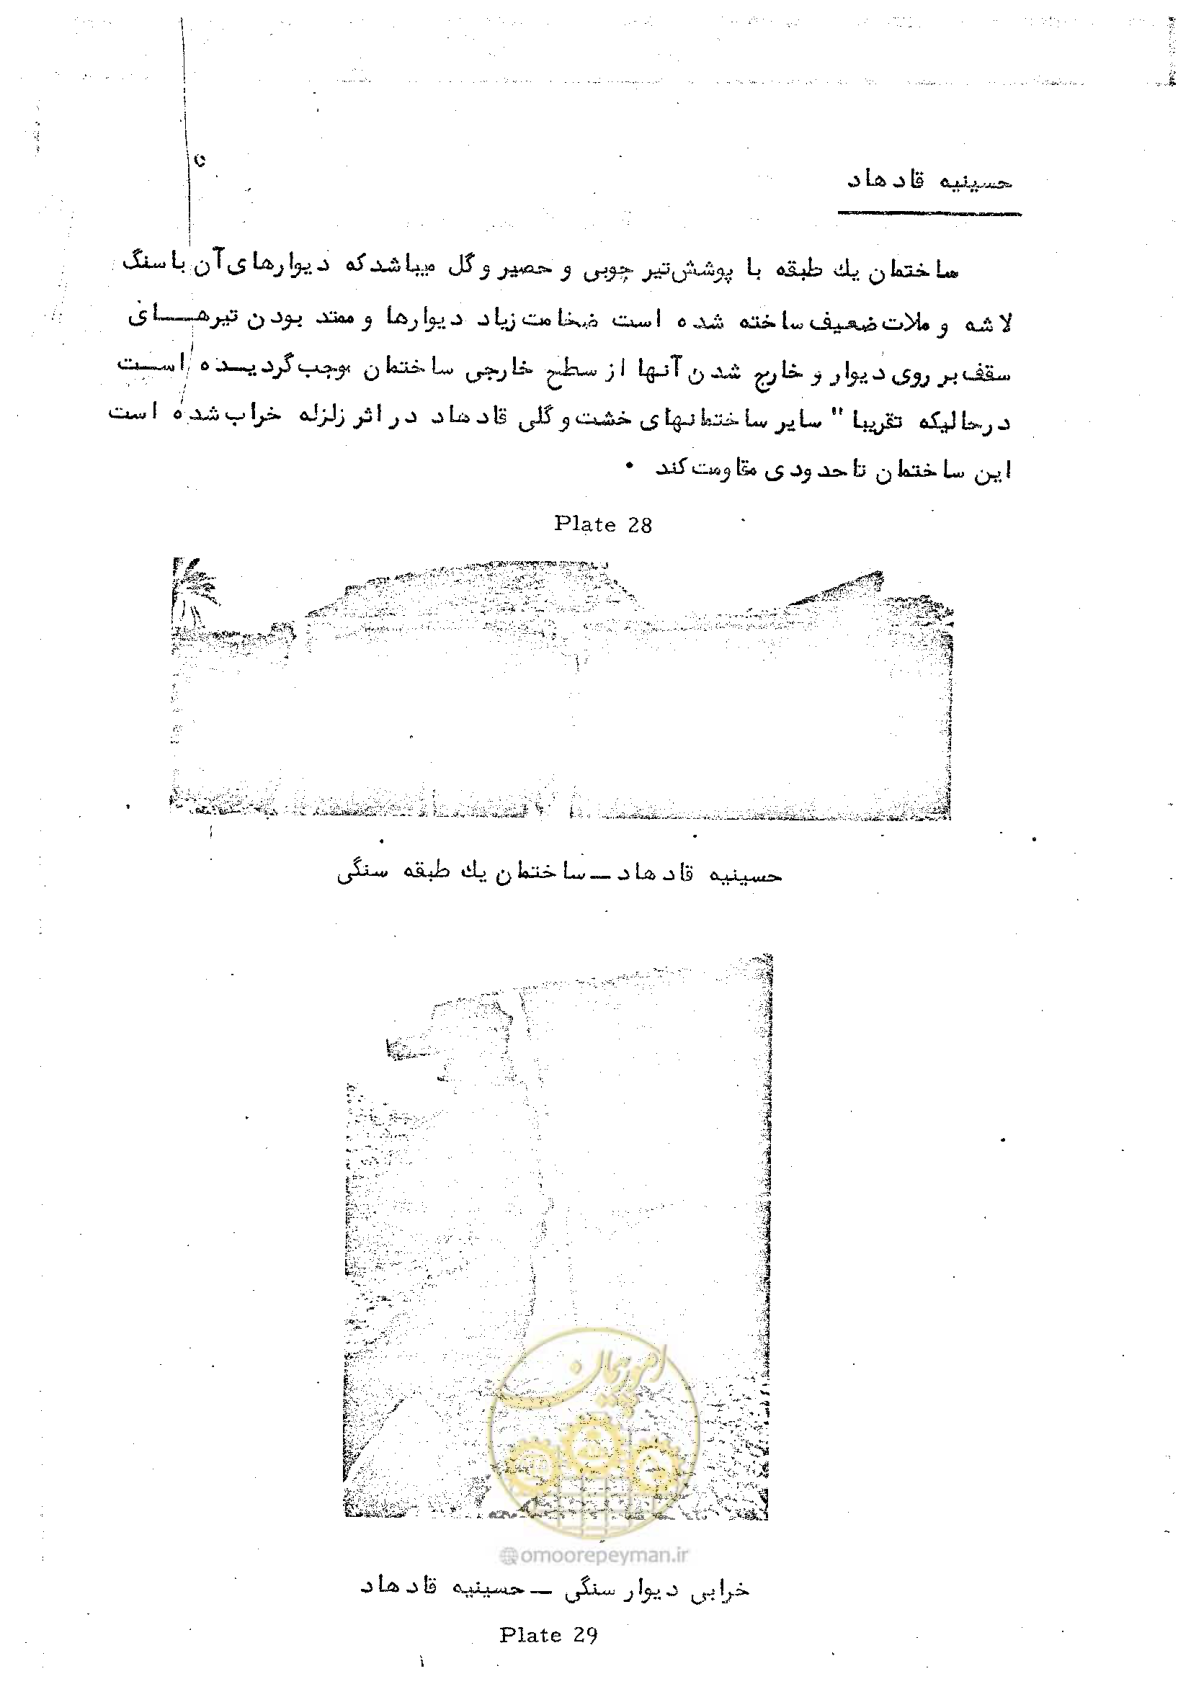 حسینیه قادهاد
ساختمان یك طبقه با پوشش تیر چوبی و حصیر و گل میباشد که دیوارهای آن با سنگ
لاشه و ملات ضعیف ساخته شده است ضخامت زیاد دیوارها و ممتد بودن تیرهــای
سقف بر روی دیوار و خارج شدن آنها از سطح خارجی ساختمان موجب گردیــده اســت
درحالیکه تقریبا" سایر ساختمانهای خشت و گلی قادهاد در اثر زلزله خراب شده است
این ساختمان تا حدودی مقاومت کند .
Plate 28
حسینیه قادهاد ــ ساختمان یك طبقه سنگی
امور پیمان
@omoorepeyman.ir
خرابی دیوار سنگی ــ حسینیه قادهاد
Plate 29